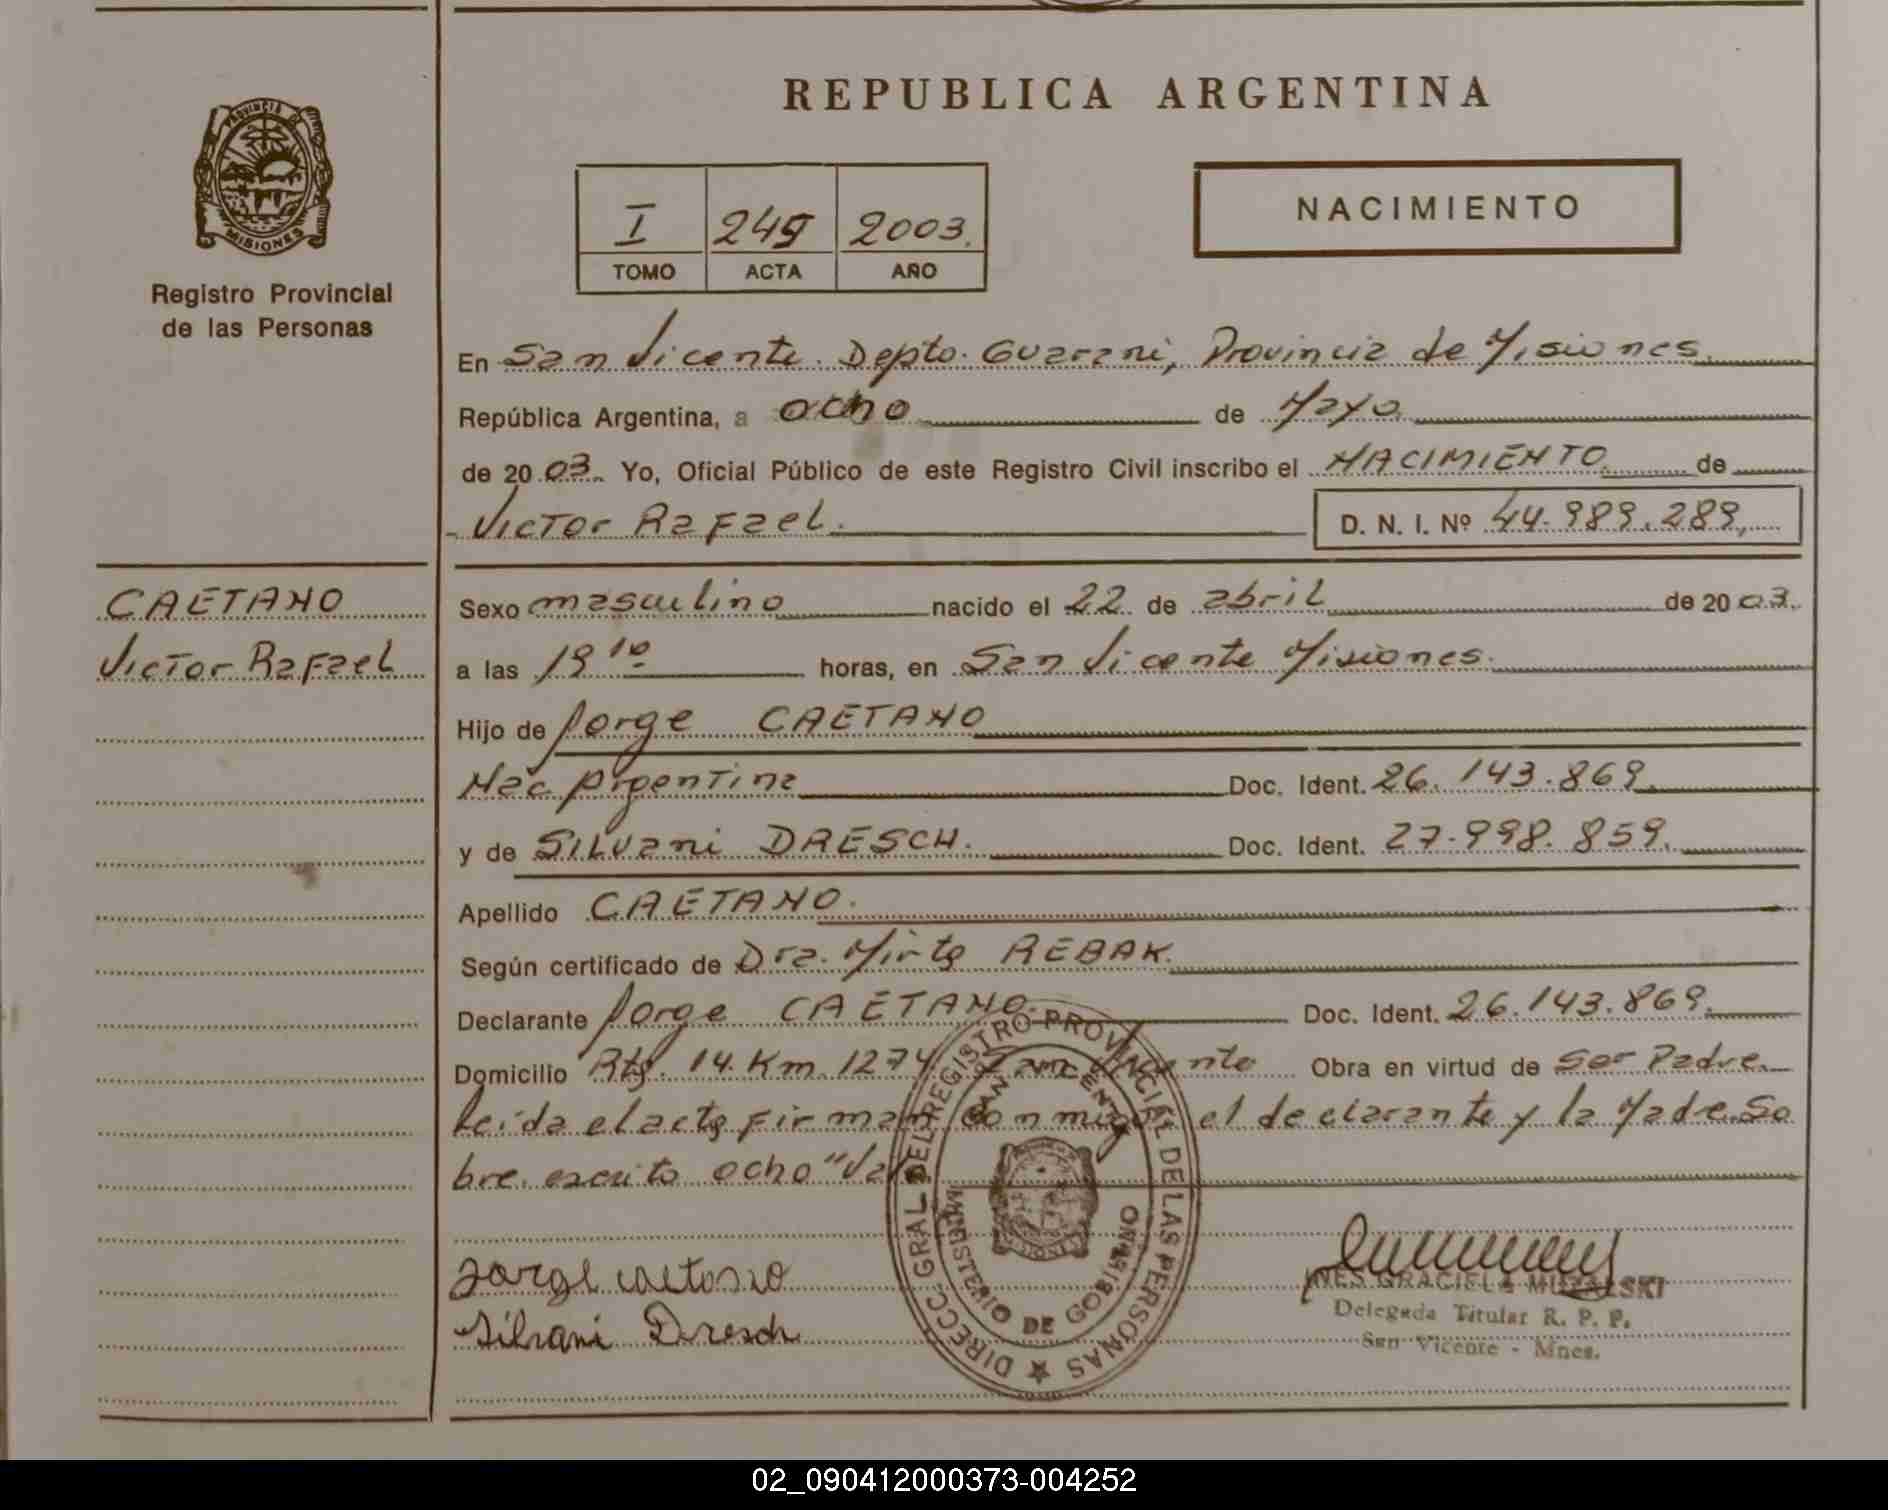 REPUBLICA ARGENTINA
PROVINCIA DE
MISIONES
Registro Provincial
de las Personas
I 249 2003.
TOMO ACTA AÑO
NACIMIENTO
En San Vicente. Depto. Guarani, Provincia de Misiones.
República Argentina, a ocho de Mayo
de 2003. Yo, Oficial Público de este Registro Civil inscribo el NACIMIENTO de
Victor Rafael. D. N. I. Nº 44.989.289,
CAETANO
Victor Rafael
Sexo masculino nacido el 22 de abril de 2003.
a las 19 10 horas, en San Vicente Misiones.
Hijo de Jorge CAETANO
Nac Argentina Doc. Ident. 26.143.869.
y de Silvani DRESCH. Doc. Ident. 27.998.859.
Apellido CAETANO.
Según certificado de Dra. Mirta REBAK.
Declarante Jorge CAETANO. Doc. Ident. 26.143.869.
Domicilio Rta. 14. Km. 1274 San Vicente Obra en virtud de Ser Padre.
Leida el acta firman conmigo el declarante y la Madre. So
bre. escrito ocho "Vale
DIRECC. GRAL. DEL REGISTRO PROVINCIAL DE LAS PERSONAS
SAN VICENTE
MINISTERIO DE GOBIERNO
Jorge Caetano
Silvani Dresch
INES GRACIELA
Delegada Titular R. P. P.
San Vicente - Mnes.
02_090412000373-004252